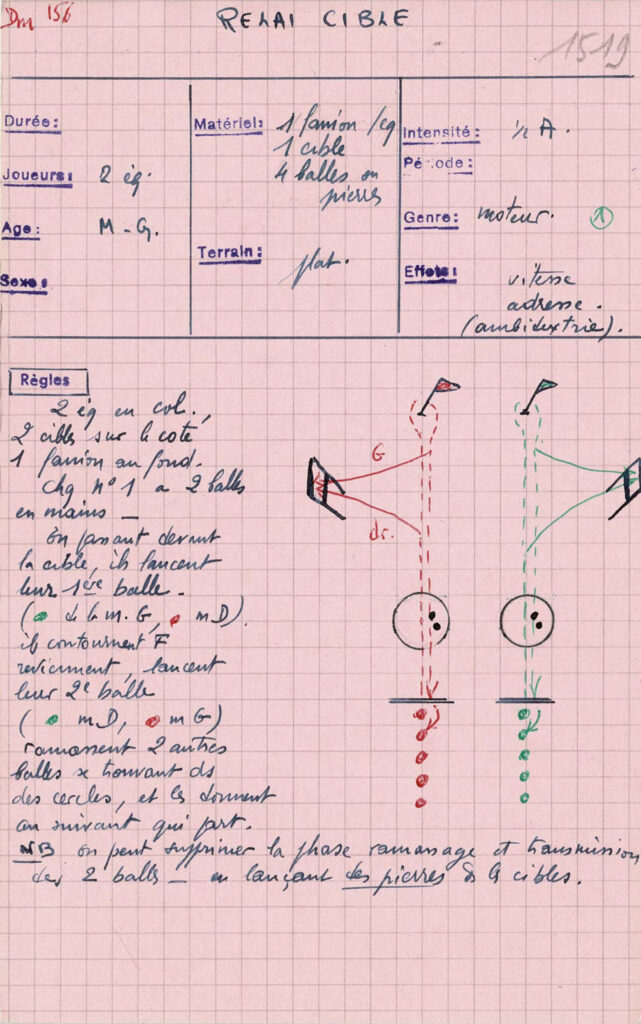 Dm 156
RELAI CIBLE
1519
Durée:
Joueurs: 2 éq.
Age: M - G.
Sexe:
Matériel: 1 fanion / eq
1 cible
4 balles ou
pierres
Terrain: plat.
Intensité: ½ A.
Période:
Genre: moteur. 1
Effets: vitesse
adresse.
(ambidextrie).
Règles
2 éq en col.,
2 cibles sur le coté
1 fanion au fond.
Chq n° 1 a 2 balles
en mains —
en passant devant
la cible, ils lancent
leur 1ère balle.
( de la m. G, m D).
ils contournent F
reviennent, lancent
leur 2e balle
( m D, m G)
ramassent 2 autres
balles se trouvant ds
des cercles, et les donnent
au suivant qui part.
NB on peut supprimer la phase ramassage et transmission
des 2 balles — en lançant des pierres ds les cibles.
G
dr.